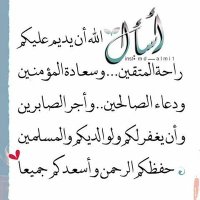 أسأل الله أن يديم عليكم
راحة المتقين...وسعادة المؤمنين
ودعاء الصالحين..وأجر الصابرين
وأن يغفر لكم ولوالديكم والمسلمين
حفظكم الرحمن وأسعدكم جميعاً